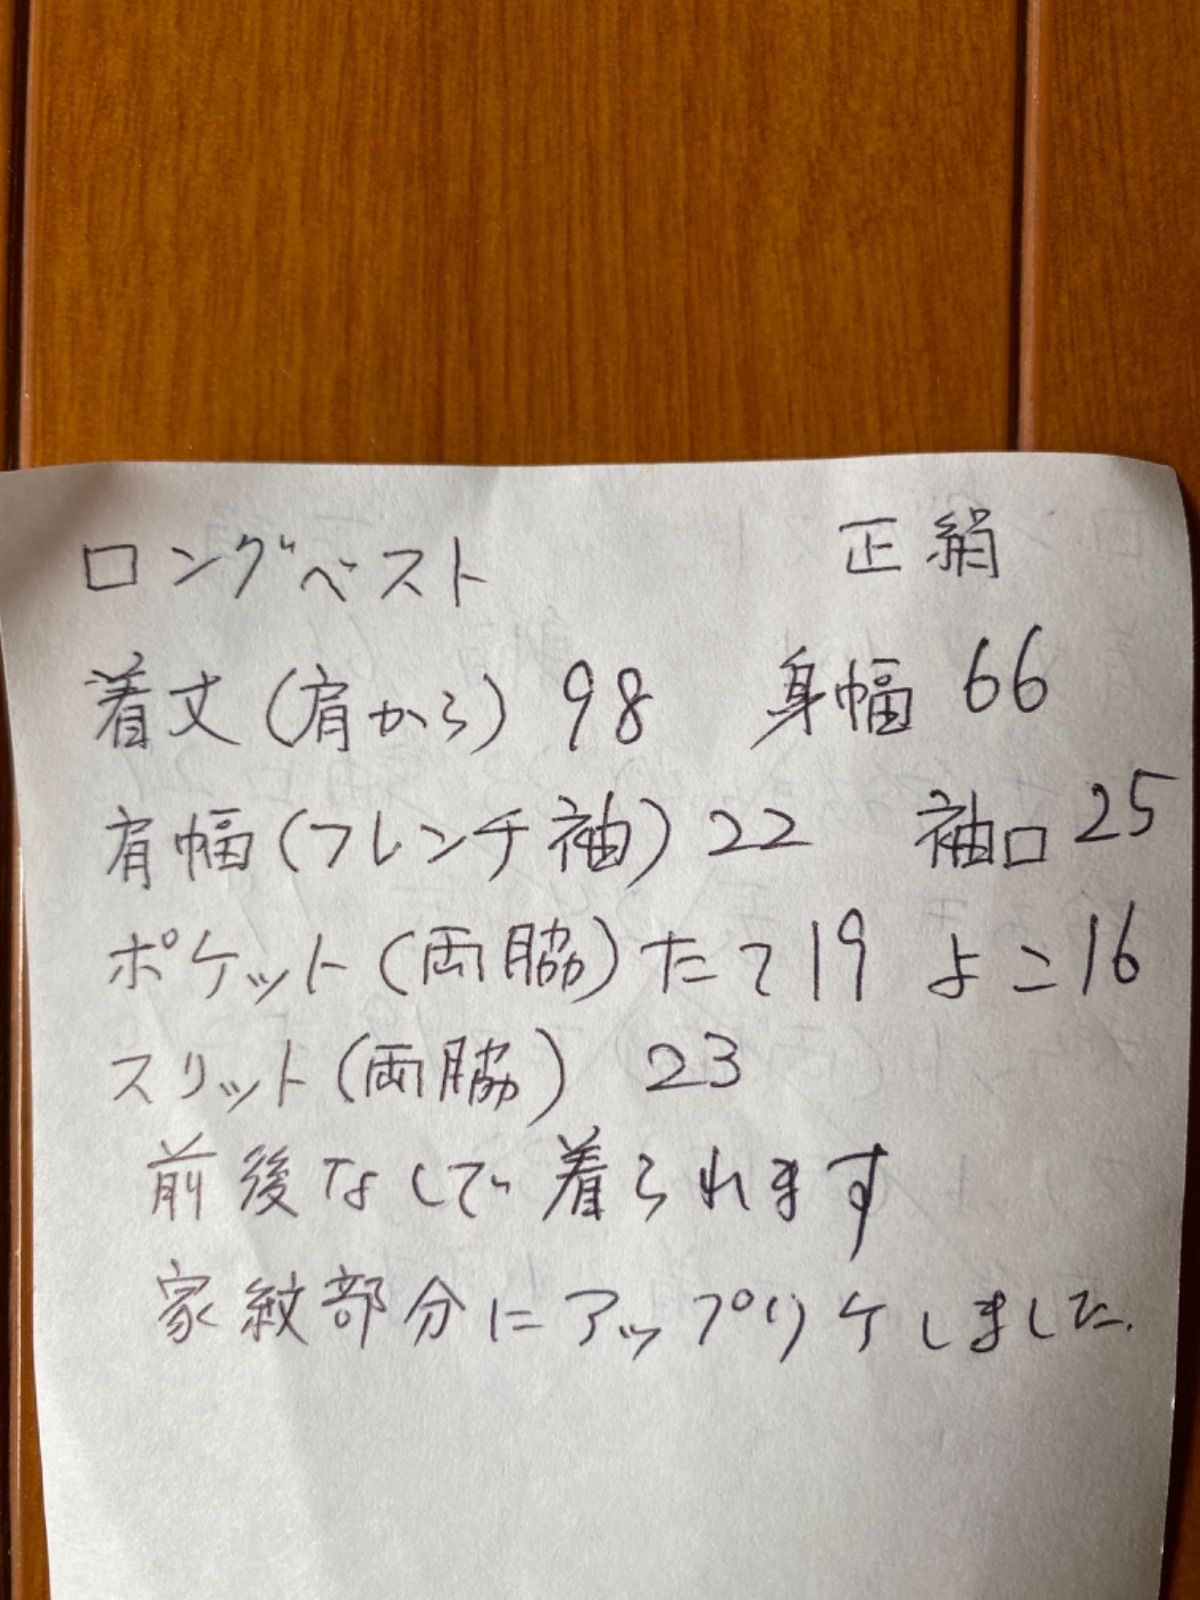 ロングベスト 正絹
着丈(肩から) 98 身幅 66
肩幅(フレンチ袖) 22 袖口 25
ポケット(両脇) たて19 よこ16
スリット(両脇) 23
前後なしで着られます
家紋部分にアップリケしました.